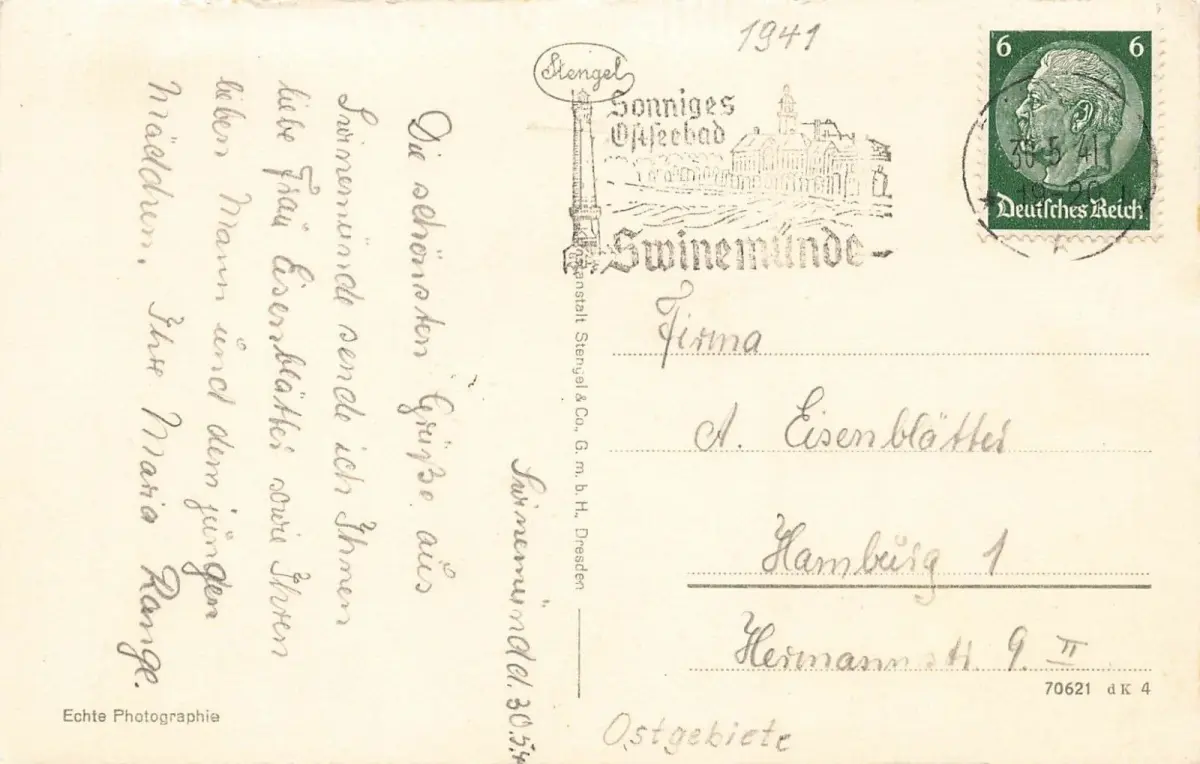 1941
Stengel
Sonniges
Ostseebad
Swinemünde
6 6
30.5.41
Deutsches Reich
Swinemünd d. 30.5.4
Die schönsten Grüße aus
Swinemünde sende ich Ihnen
liebe Frau Eisenblätter sowie Ihren
lieben Mann und dem jungen
Mädchen. Ihre Maria Range.
anstalt Stengel & Co., G. m. b. H., Dresden
Firma
A. Eisenblätter
Hamburg 1
Hermannstr 9. II
70621 dK 4
Echte Photographie
Ostgebiete